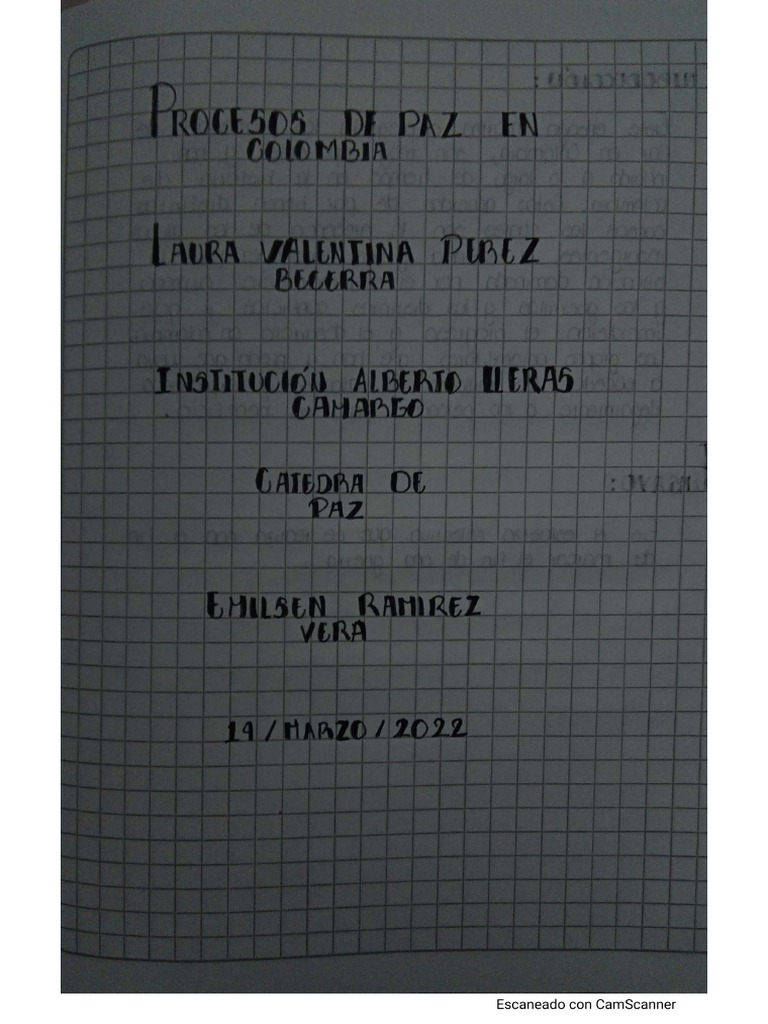 PROCESOS DE PAZ EN
COLOMBIA
LAURA VALENTINA PEREZ
BECERRA
INSTITUCIÓN ALBERTO LLERAS
CAMARGO
CATEDRA DE
PAZ
EMILSEN RAMIREZ
VERA
14/MARZO/2022
Escaneado con CamScanner